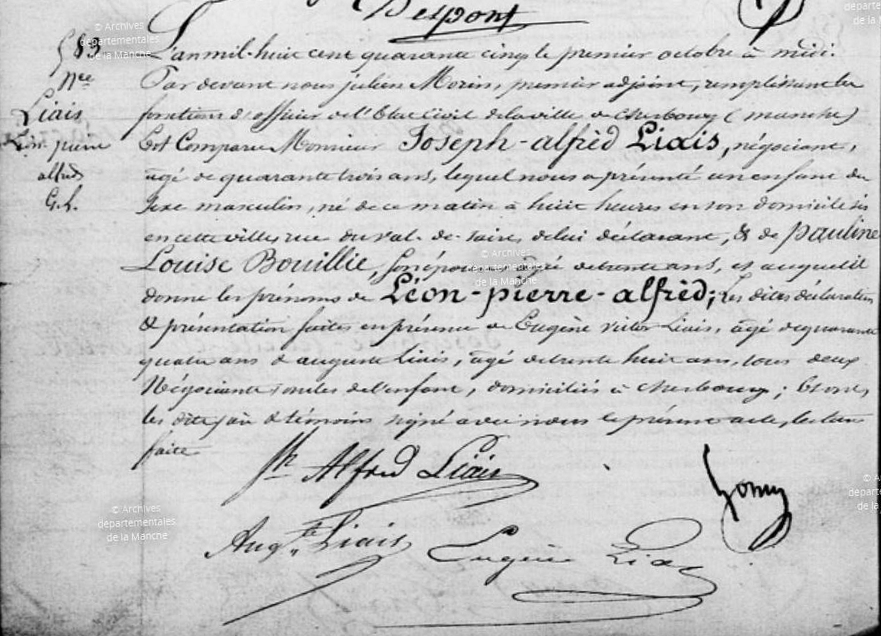 Despont
583
N.ce
Liais
Léon pierre
alfred
G. L.
L'an mil-huit cent quarante cinq le premier octobre à midi.
Par devant nous julien Morin, premier adjoint, remplissant les
fonctions d'officier de l'Etat Civil de la ville de Cherbourg (manche)
Est Comparu Monsieur Joseph-alfred Liais, négociant,
âgé de quarante trois ans, lequel nous a présenté un enfant du
sexe masculin, né de ce matin à huit heures en son domicile sis
en cette ville, rue du val-de-saire, de lui déclarant, & de Pauline
Louise Bouillie, son épouse âgée de trente ans, et auquel il
donne les prénoms de Léon-pierre-alfred; les dites déclaration
& présentation faites en présence de Eugène victor Liais, âgé de quarante
quatre ans & auguste Liais, âgé de trente huit ans, tous deux
Négociants oncles de l'enfant, domiciliés à cherbourg; Et ont
les dits père & témoins signé avec nous le présent acte, lecture
faite
Jh Alfred Liais
Augte Liais Eugène Liais
© Archives
départementales
de la Manche